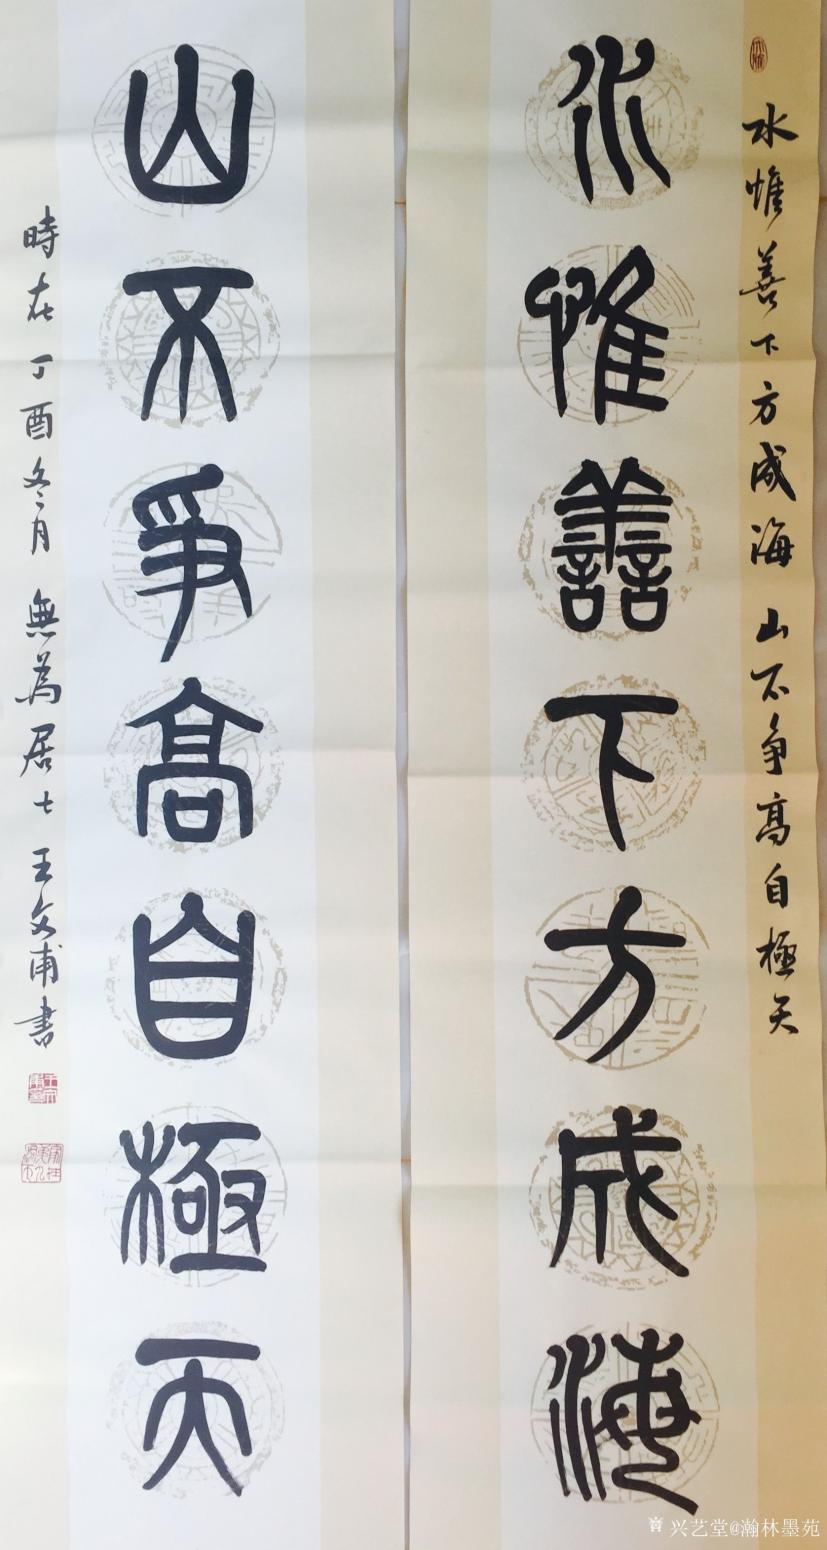 水惟善下方成海 山不争高自極天
水惟善下方成海
山不爭高自極天
時在丁酉冬月 無為居士王文甫書
兴艺堂@瀚林墨苑